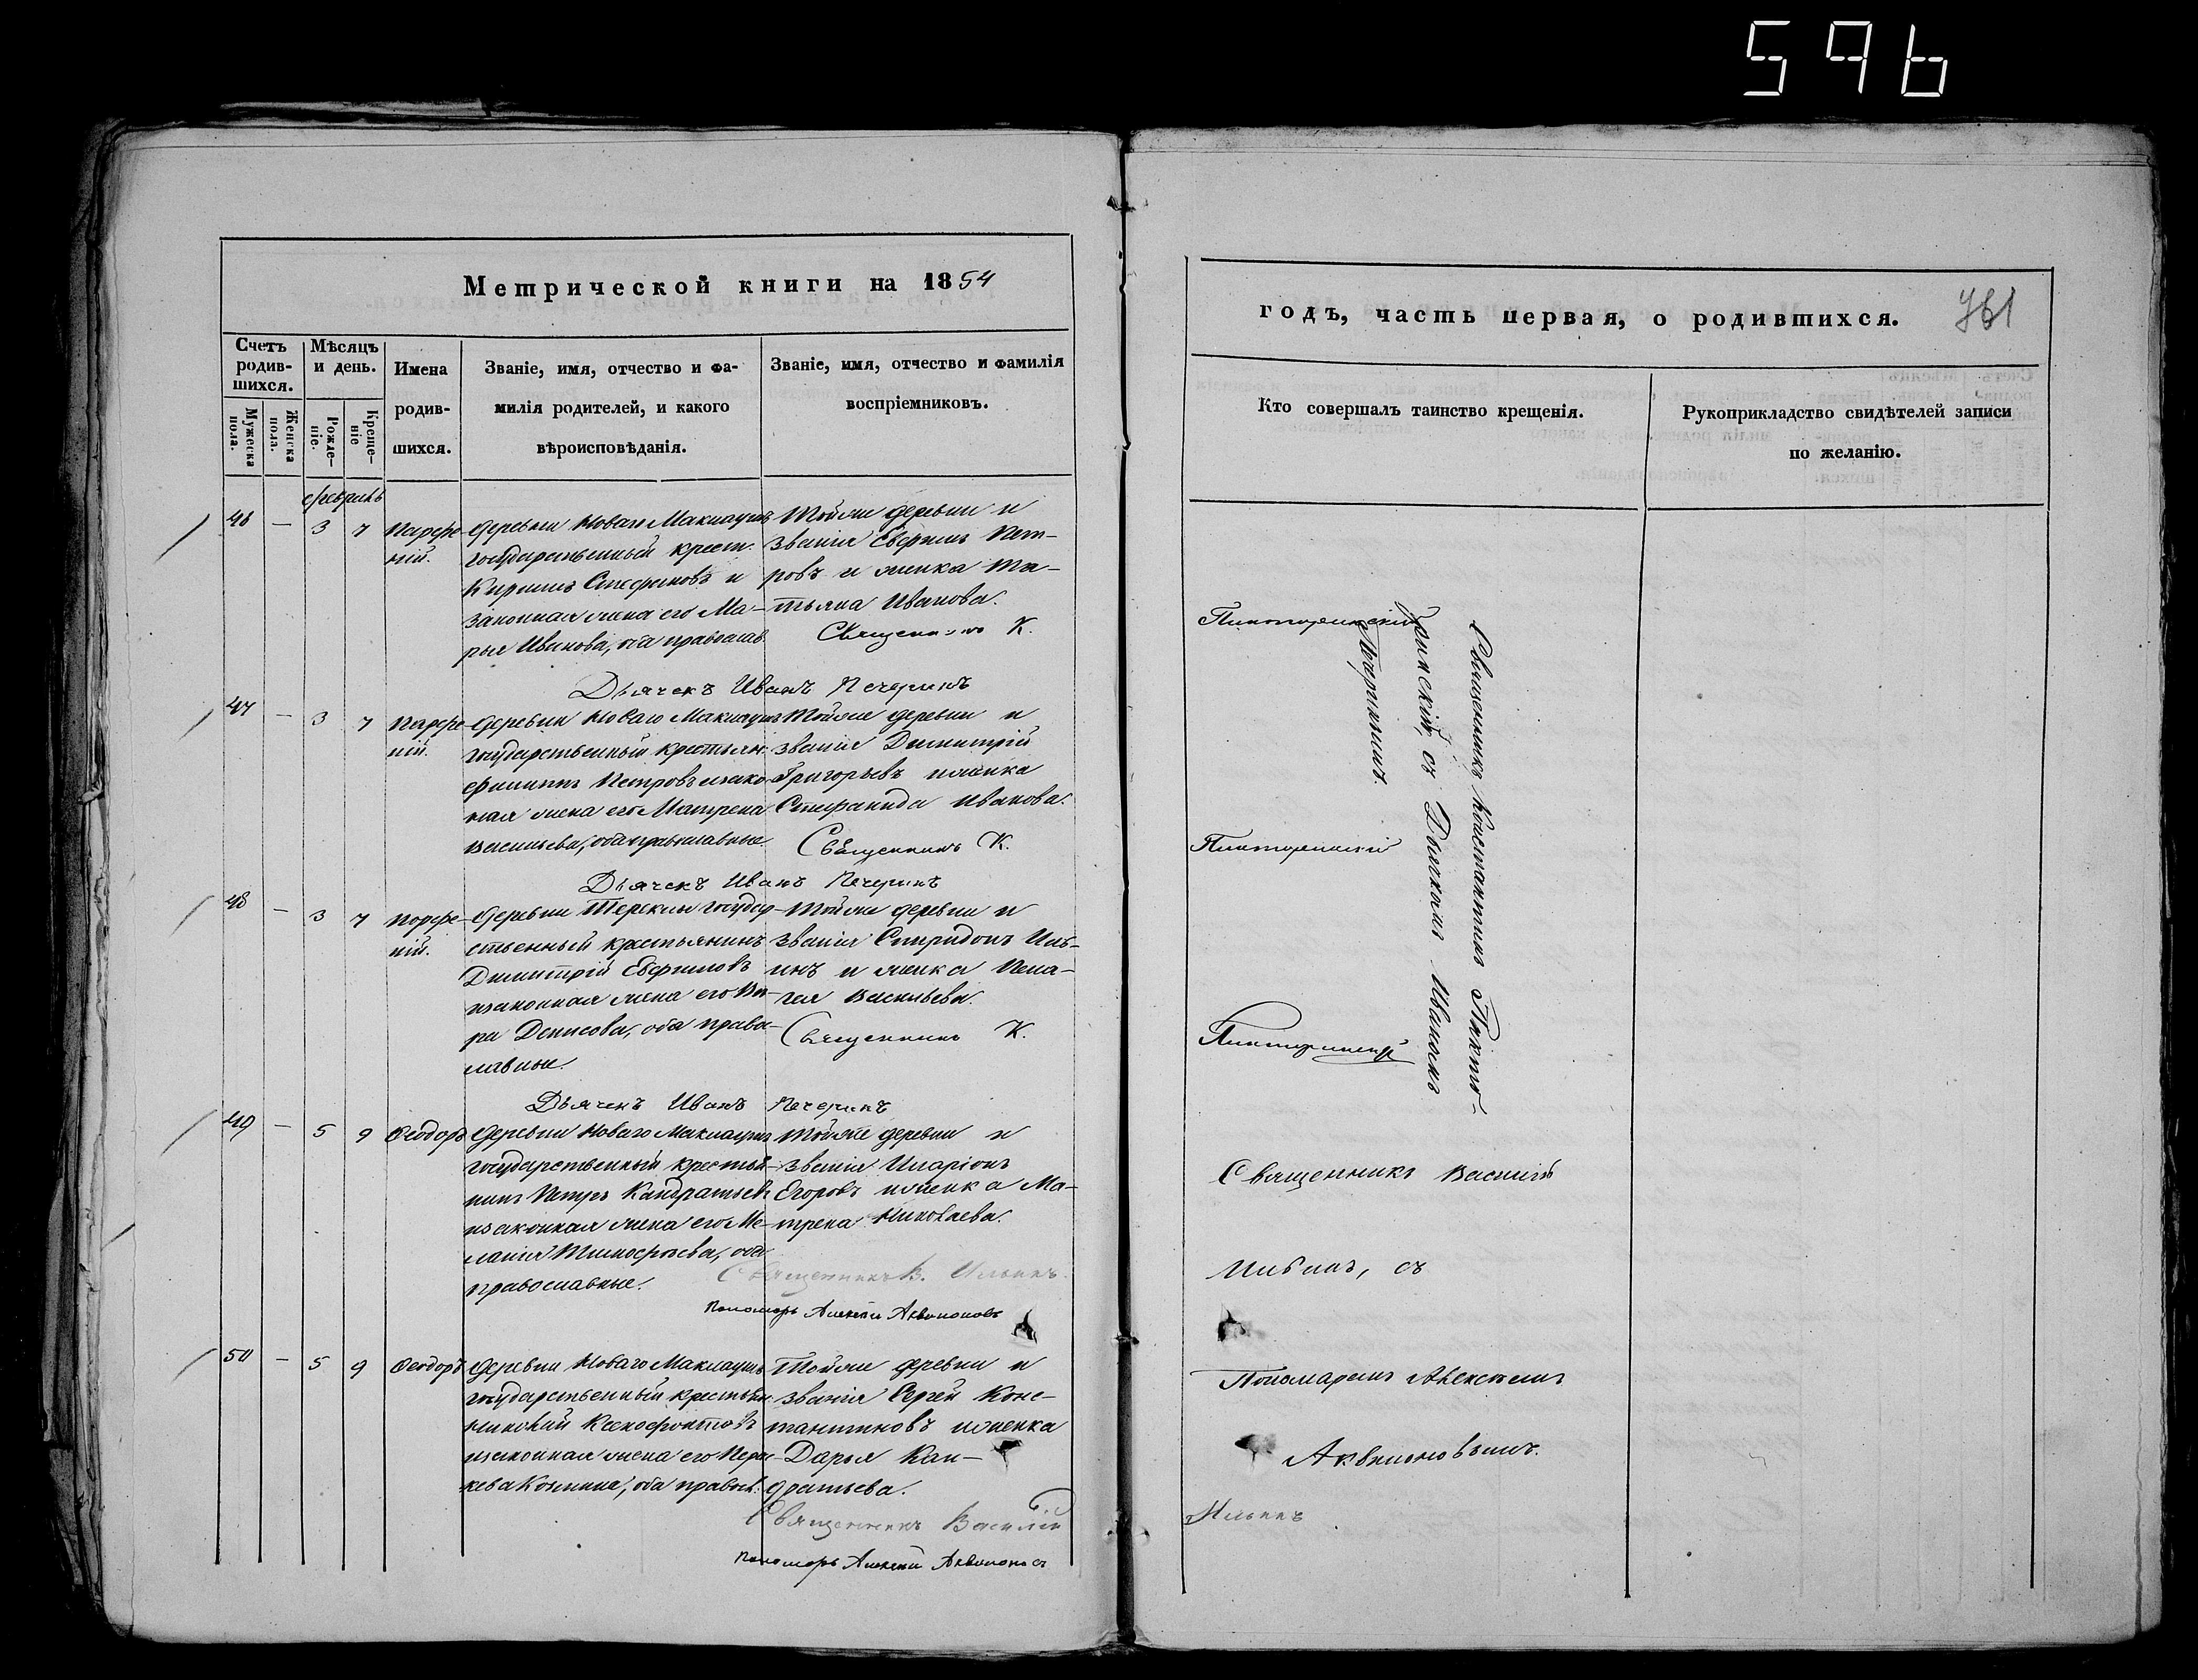 596
Метрической книги на 1854
Счетъ родив-шихся.
Мужеска пола.
Женска пола.
Мѣсяцъ и день.
Рожде-ніе.
Креще-ніе
Имена
родив-
шихся.
Званіе, имя, отчество и фа-
милія родителей, и какого
вѣроисповѣданія.
Званіе, имя, отчество и фамилія
воспріемниковъ.
46 — 3 7
Парфе-
ній.
Деревни Новаго Маклауша
государственный крест.
Кирилъ Стефановъ и
законная жена его Ма-
рья Иванова, оба православ.
Тойже деревни и
званія Евфимъ Пет-
ровъ и женка Та-
тьяна Иванова.
Священникъ К.
Дьячекъ Иванъ Печеринъ
47 — 3 7
Парфе-
ній.
Деревни Новаго Маклауша
государственный крестьян.
Филиппъ Петровъ изако-
ная жена его Матрена
Васильева, оба православные
Тойже деревни и
званія Димитрій
Григорьевъ иженка
Стефанида Иванова.
Священникъ К.
Дьячекъ Иванъ Печеринъ
48 — 3 7
Порфе-
ній.
Деревни Тереклы государ-
ственный крестьянинъ
Димитрій Евфимовъ
изаконная жена его Ва-
ра Денисова, оба право-
лавные.
Тойже деревни и
званія Спиридонъ Иль-
инъ и женка Пела-
гея Васильева.
Священникъ К.
Дьячекъ Иванъ Печеринъ
49 — 5 9
Ѳеодоръ
Деревни Новаго Маклауша
государственный крестья-
нинъ Петръ Кандратьевъ
изаконная жена его Ме-
ланія Тимофѣева, оба
православные.
Тойже деревни и
званія Иларіонъ
Егоровъ иженка Ма-
трена Николаева.
Священникъ В. Ильинъ.
Пономарь Алексѣй Аквилоновъ
50 — 5 9
Ѳеодоръ
Деревни Новаго Маклауша
государственный крестьян.
Николай Ксенофонтовъ
изаконная жена его Пара-
кева Козмина, оба правосл.
Тойже деревни и
званія Сергей Конс-
тантиновъ иженка
Дарья Кан-
дратьева.
Священникъ Василій
Пономарь Алексѣй Аквилоновъ
годъ, часть первая, о родившихся.
761
Кто совершалъ таинство крещенія.
Рукоприкладство свидѣтелей записи
по желанію.
Пикторинскій
Пикторинскій
Пикторинскій
Священникъ Константинъ Пикто-
ринскій, съ Дьячкомъ Иваномъ
Печеринымъ.
Священникъ Василій
Ильинъ, съ
Пономаремъ Алексѣемъ
Аквилоновымъ.
Ильинъ